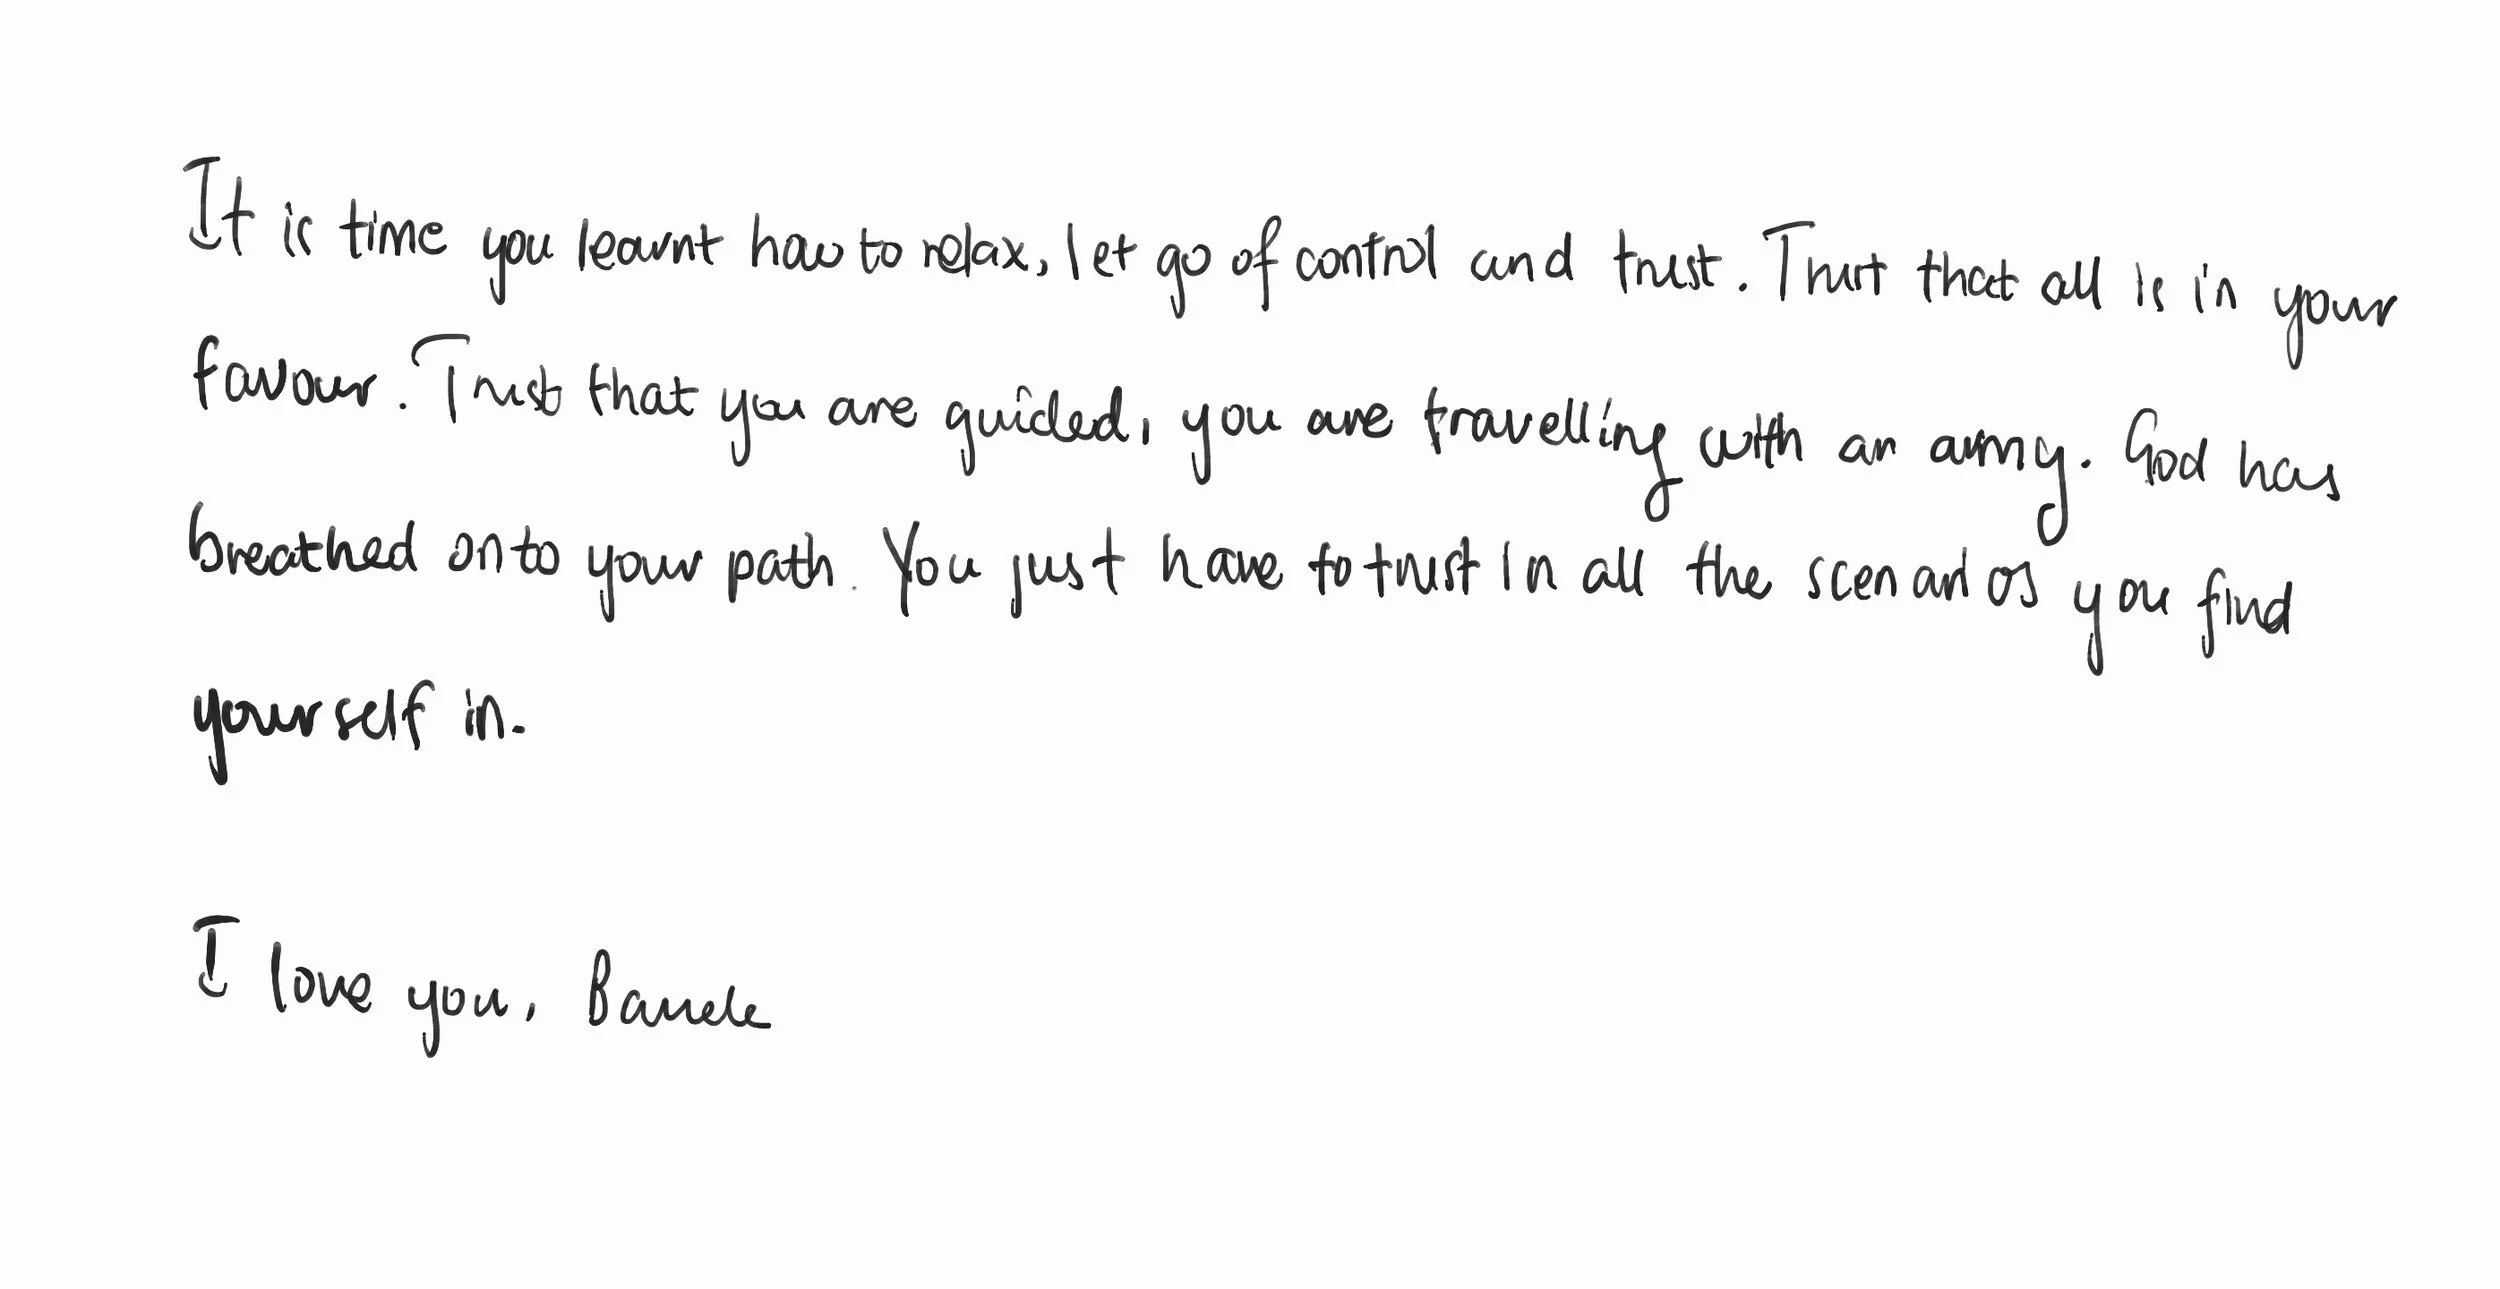 It is time you learnt how to relax, let go of control and trust. Trust that all is in your
favour. Trust that you are guided, you are travelling with an army. God has
breathed onto your path. You just have to trust in all the scenarios you find
yourself in.
I love you,